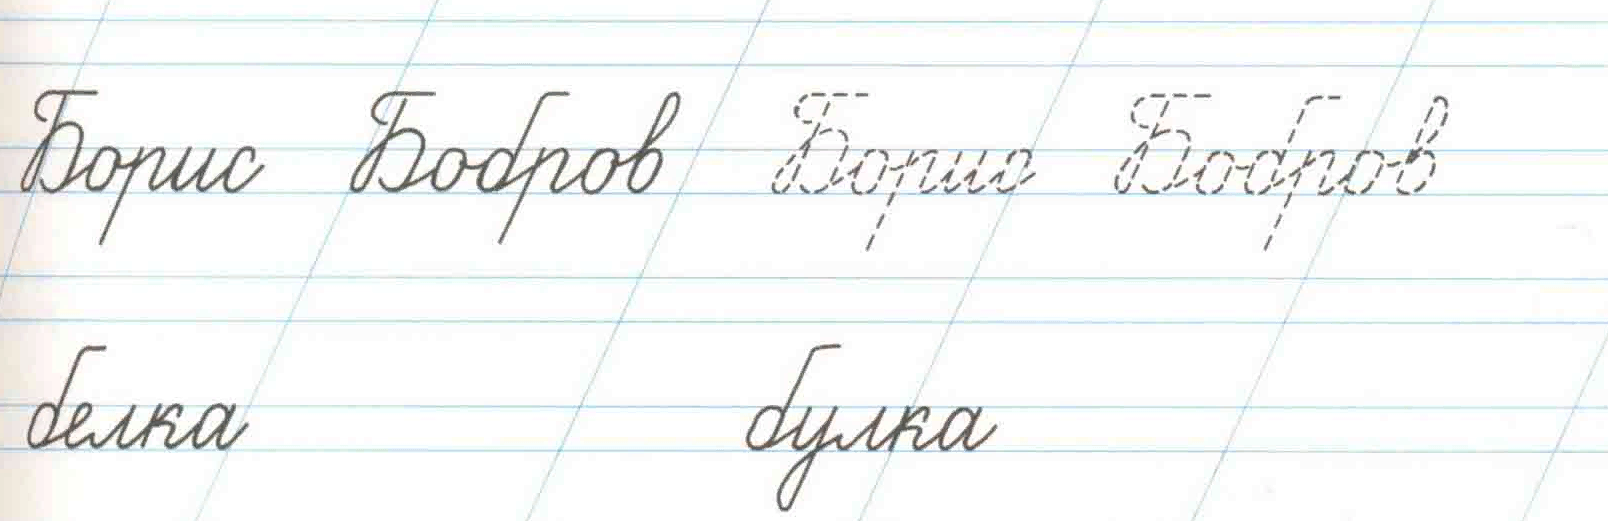 Борис Бобров Борис Бобров
белка булка